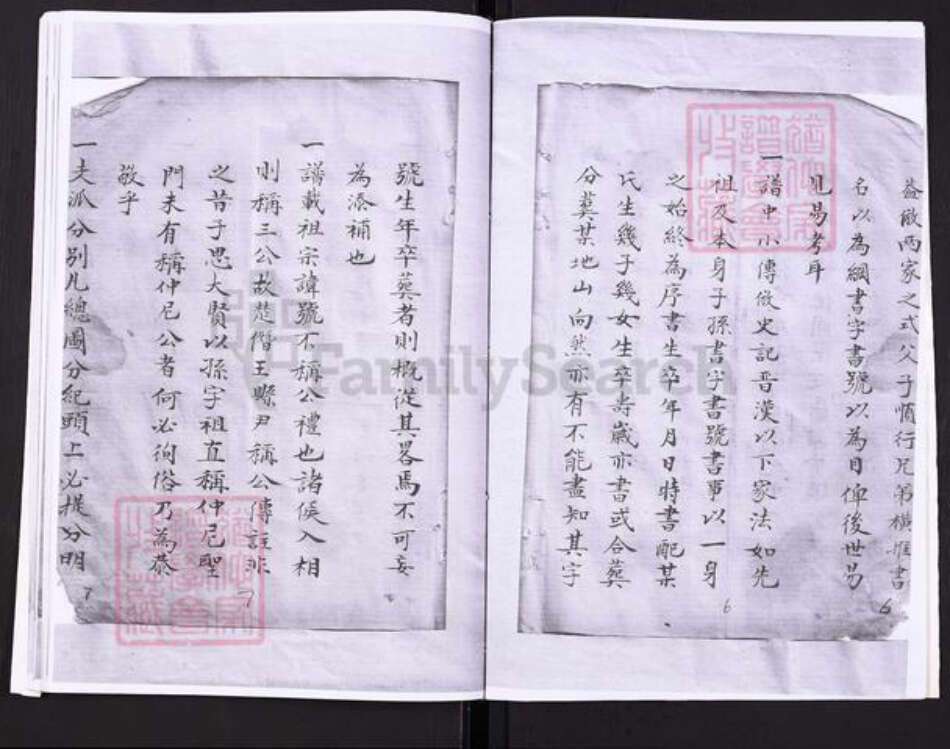 益啟两家之式父子順行兄弟橫推書
名以為綱書字書號以為目俾後世易
見易考耳
一譜中小傳倣史記晋漢以下家法如先
祖及本身子孫書字書號書事以一身
之始終為序書生卒年月日時書配某
氏生幾子幾女生卒壽歲亦書或合葬
分葬某地山向然亦有不能盡知其字
6
6
號生年卒葬者則概從其畧焉不可妄
為添補也
一譜載祖宗諱號不稱公禮也諸侯入相
則稱三公故楚僭王縣尹稱公傳註非
之昔子思大賢以孫字祖直稱仲尼聖
門未有稱仲尼公者何必徇俗乃為恭
敬乎
一夫派分別凡總圖分紀頭上必提分明
7
7
FamilySearch